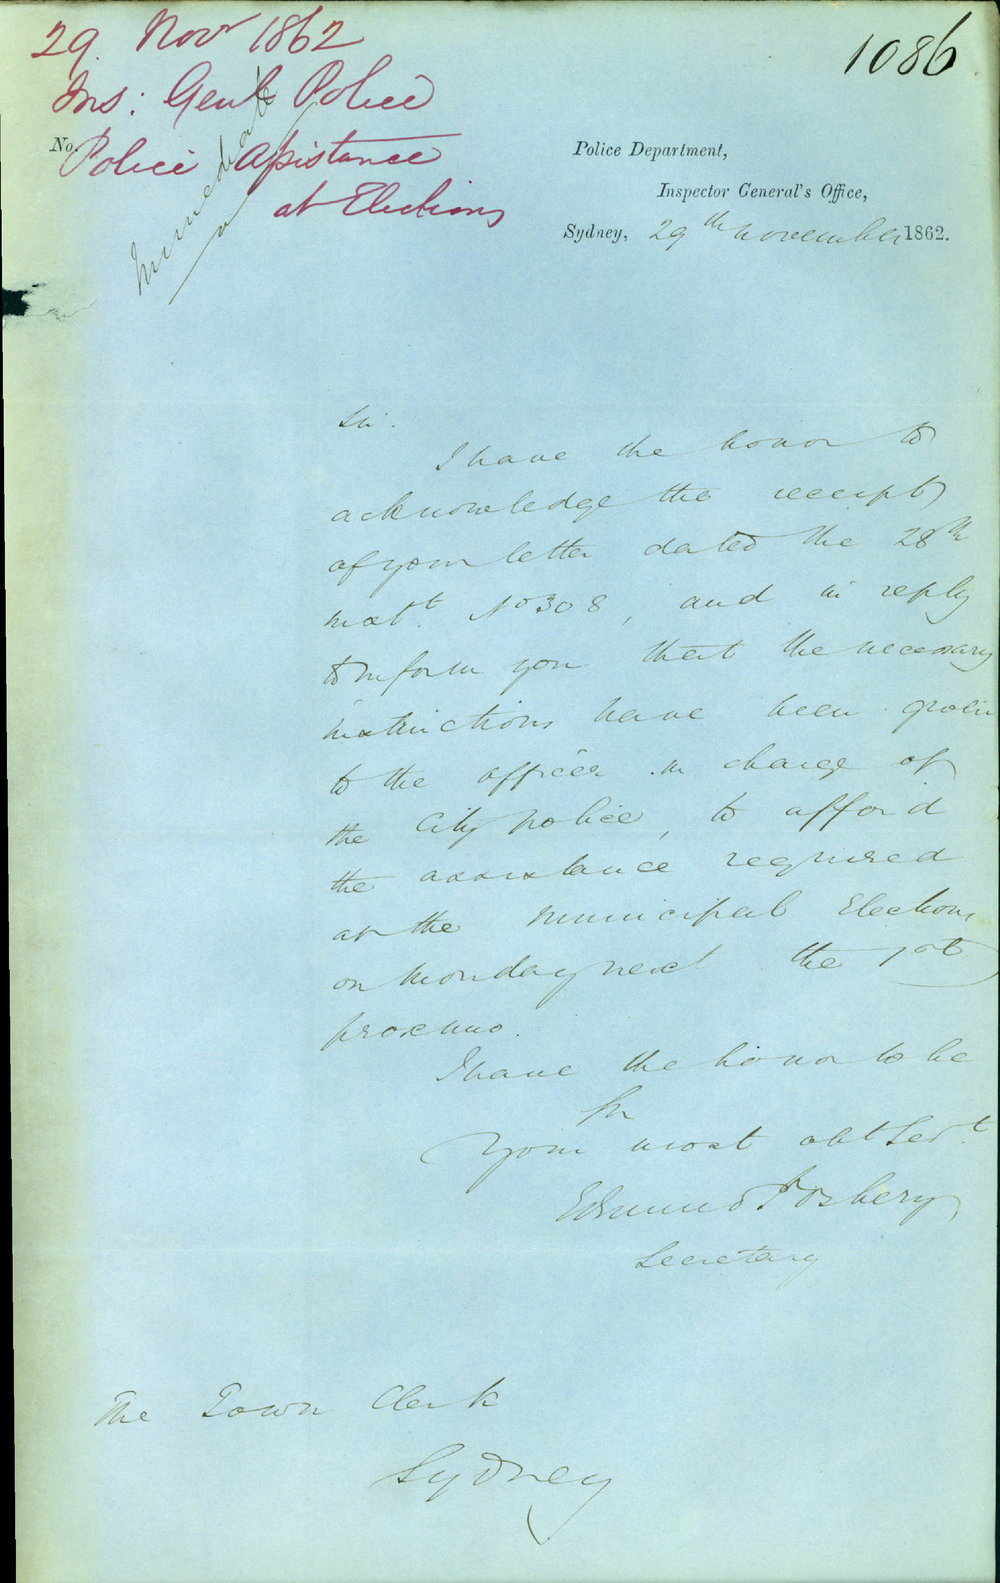 29 Novr 1862
1086
Ins: Genl Police
No.
Police Assistance
at Elections
Immediate
Police Department,
Inspector General's Office,
Sydney, 29th November 1862.
Sir.
I have the honor to
acknowledge the receipt
of your letter dated the 28th
inst. No 308, and in reply
to inform you that the necessary
instructions have been given
to the officer in charge of
the City police, to afford
the assistance required
at the Municipal Elections
on Monday next the 1st
proximo.
I have the honor to be
Sir
Your most obt Servt
Edmund Fosbery
Secretary
The Town Clerk
Sydney